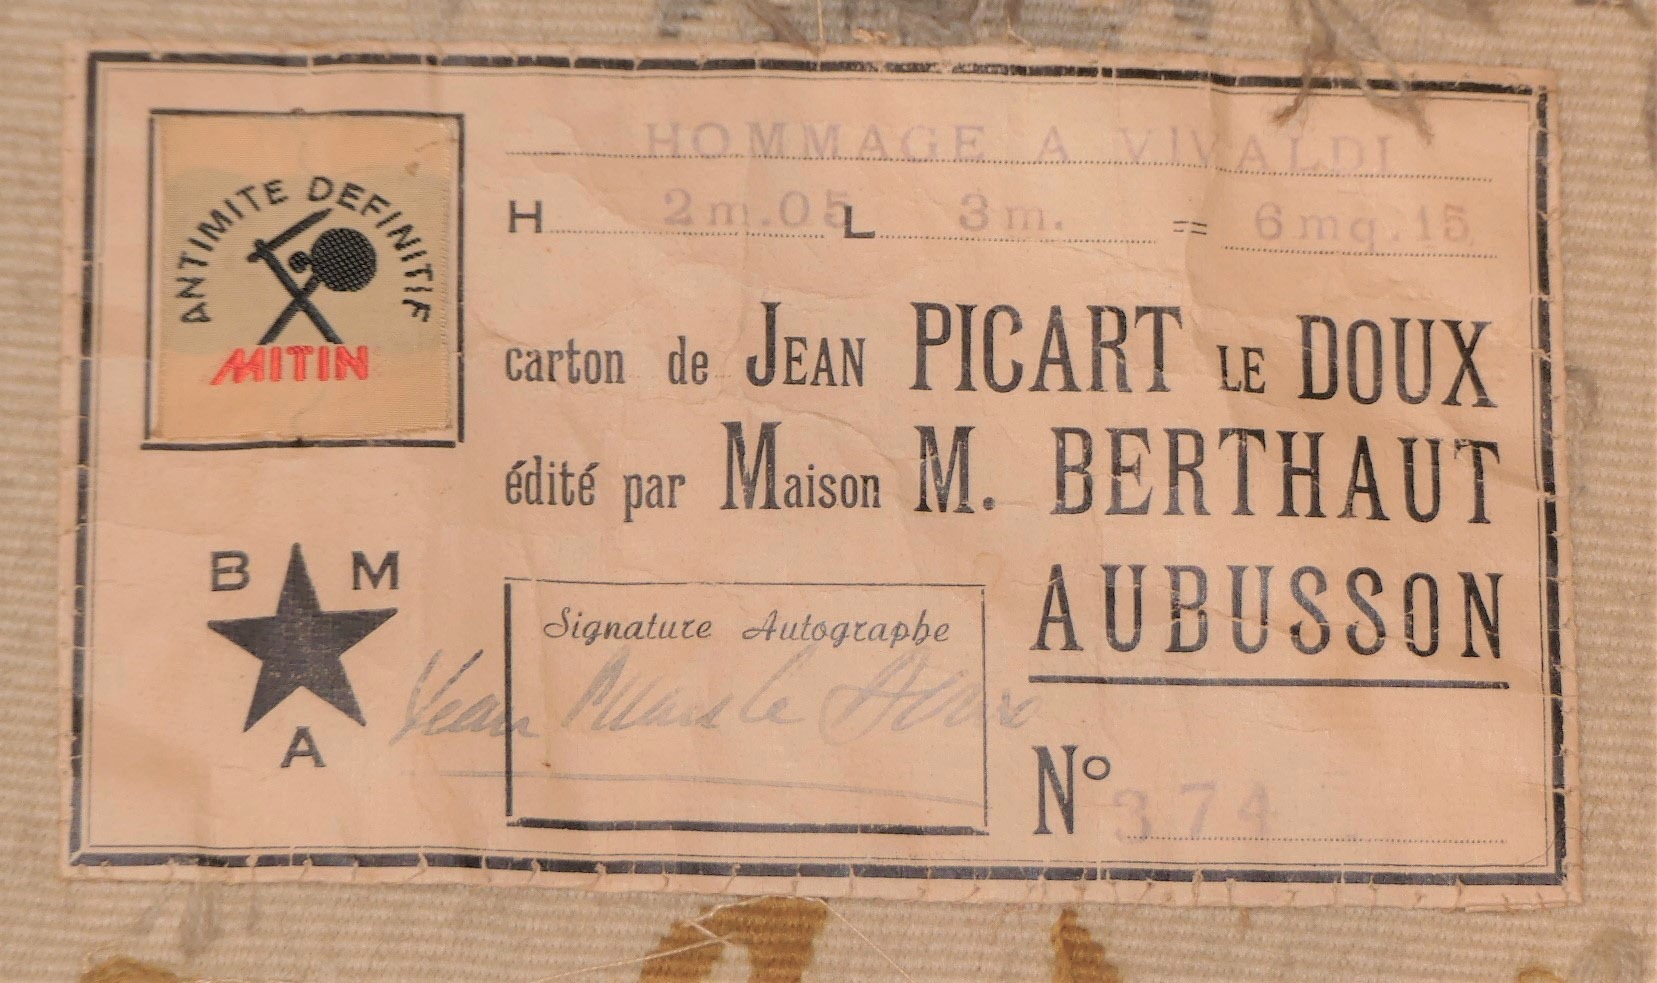 ANTIMITE DEFINITIF
MITIN
HOMMAGE A VIVALDI
H 2m.05 L 3m. = 6mq.15
carton de JEAN PICART LE DOUX
édité par Maison M. BERTHAUT
AUBUSSON
B M
A
Signature Autographe
Jean Picart le Doux
N° 374